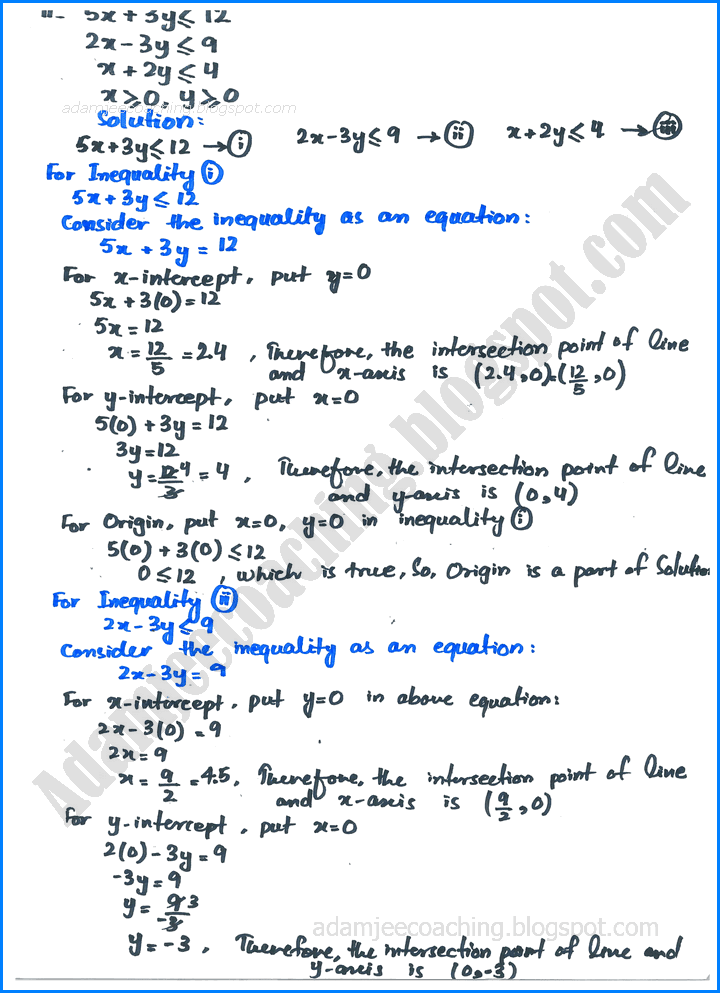 ii- 5x + 3y ≤ 12
2x - 3y ≤ 9
x + 2y ≤ 4
x ≥ 0, y ≥ 0
adamjeecoaching.blogspot.com
Solution:
5x + 3y ≤ 12 → (i) 2x - 3y ≤ 9 → (ii) x + 2y ≤ 4 → (iii)
For Inequality (i)
5x + 3y ≤ 12
Consider the inequality as an equation:
5x + 3y = 12
For x-intercept, put y=0
5x + 3(0) = 12
5x = 12
x = 12/5 = 2.4 , Therefore, the intersection point of line
and x-axis is (2.4, 0) = (12/5, 0)
For y-intercept, put x=0
5(0) + 3y = 12
3y = 12
y = 12/3 4 = 4 , Therefore, the intersection point of line
and y-axis is (0, 4)
For Origin, put x=0, y=0 in inequality (i)
5(0) + 3(0) ≤ 12
0 ≤ 12 , which is true, So, Origin is a part of Solution
For Inequality (ii)
2x - 3y ≤ 9
Consider the inequality as an equation:
2x - 3y = 9
For x-intercept, put y=0 in above equation:
2x - 3(0) = 9
2x = 9
x = 9/2 = 4.5, Therefore, the intersection point of line
and x-axis is (9/2, 0)
For y-intercept, put x=0
2(0) - 3y = 9
-3y = 9
y = 9/-3 3
y = -3 , Therefore, the intersection point of line and
y-axis is (0, -3)
adamjeecoaching.blogspot.com
Adamjeecoaching.blogspot.com